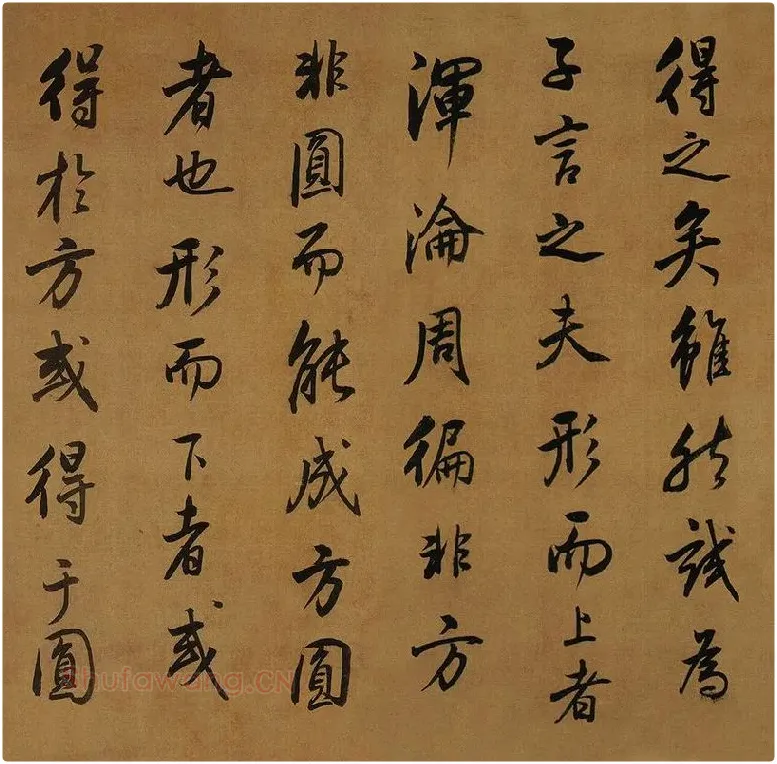 得之矣雖然試為
子言之夫形而上者
渾淪周徧非方
非圓而能成方圓
者也形而下者或
得於方或得于圓
shufawang.CN